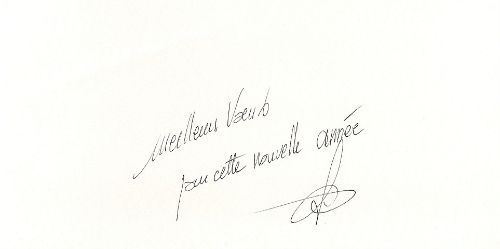 Meilleurs Vœux
pour cette nouvelle année